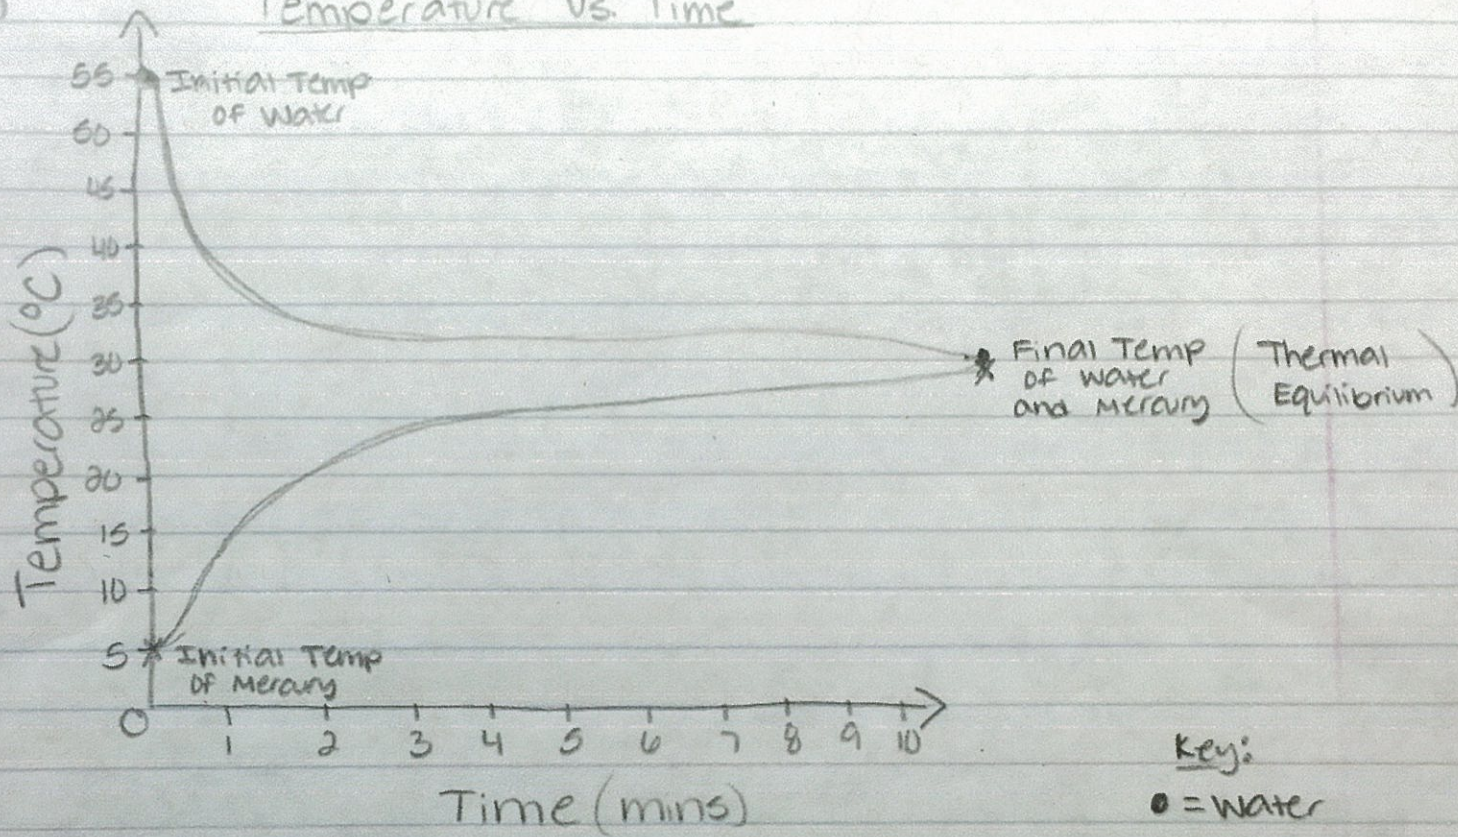 Temperature vs. Time
55
Initial Temp
of Water
50
45
40
35
30
25
20
15
10
5
0
Temperature (°C)
Final Temp
of Water
and Mercury
(Thermal
Equilibrium)
Initial Temp
of Mercury
1 2 3 4 5 6 7 8 9 10
Time (mins)
Key:
• = Water